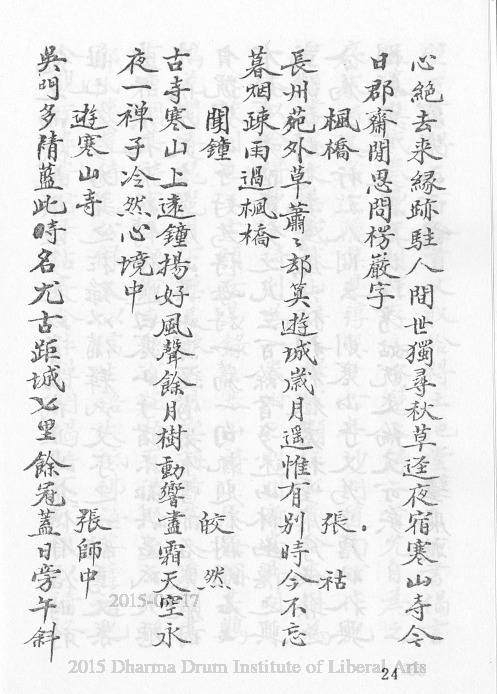 心絶去来緣跡駐人間世獨尋秋草逕夜宿寒山寺今
日郡齋閒思問楞嚴字
楓橋 張祜
長州苑外草蕭〻却筭遊城歲月遥惟有别時今不忘
暮烟疎雨過楓橋
聞鐘 皎然
古寺寒山上遠鐘揚好風聲餘月樹動響盡霜天空永
夜一禅子冷然心境中
遊寒山寺 張師中
吳門多精藍此時名尤古距城七里餘冠蓋日旁午斜
2015-0 17
2015 Dharma Drum Institute of Liberal Arts
24